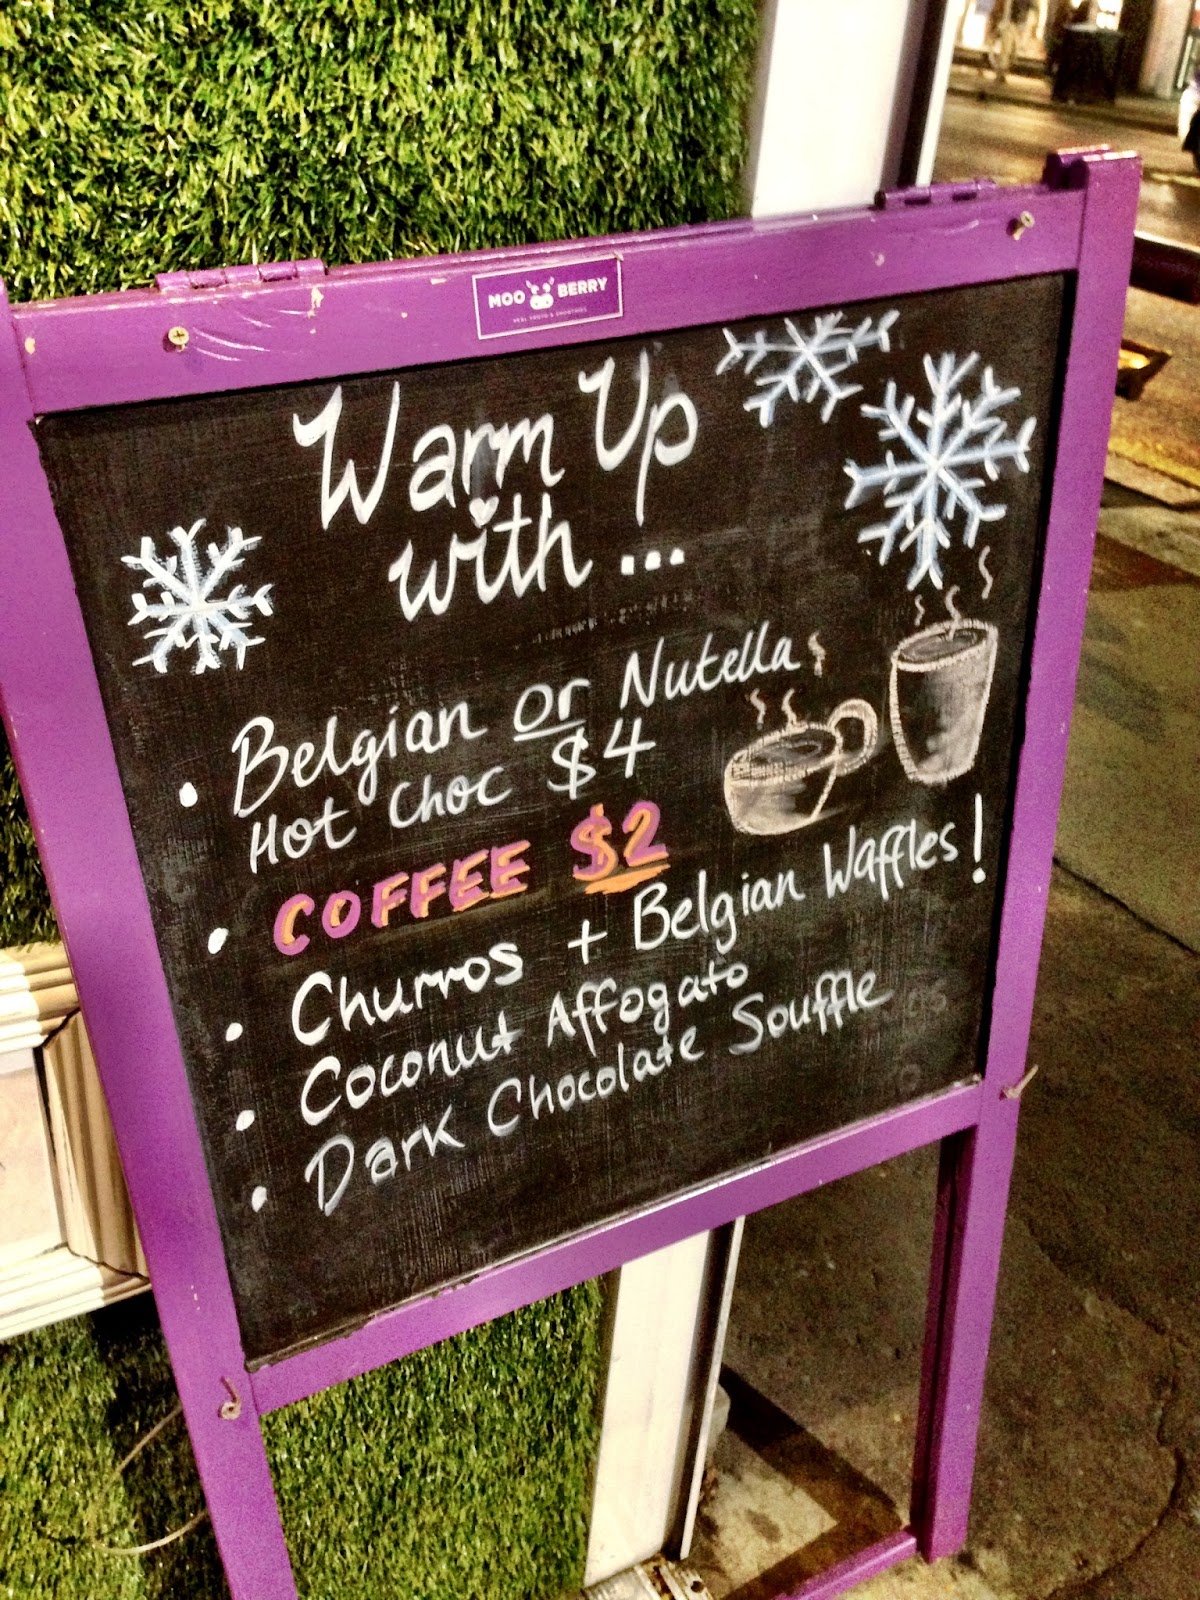 MOO BERRY
Warm Up
with ...
• Belgian or Nutella
Hot Choc $4
• COFFEE $2
• Churros + Belgian Waffles!
• Coconut Affogato
• Dark Chocolate Souffle